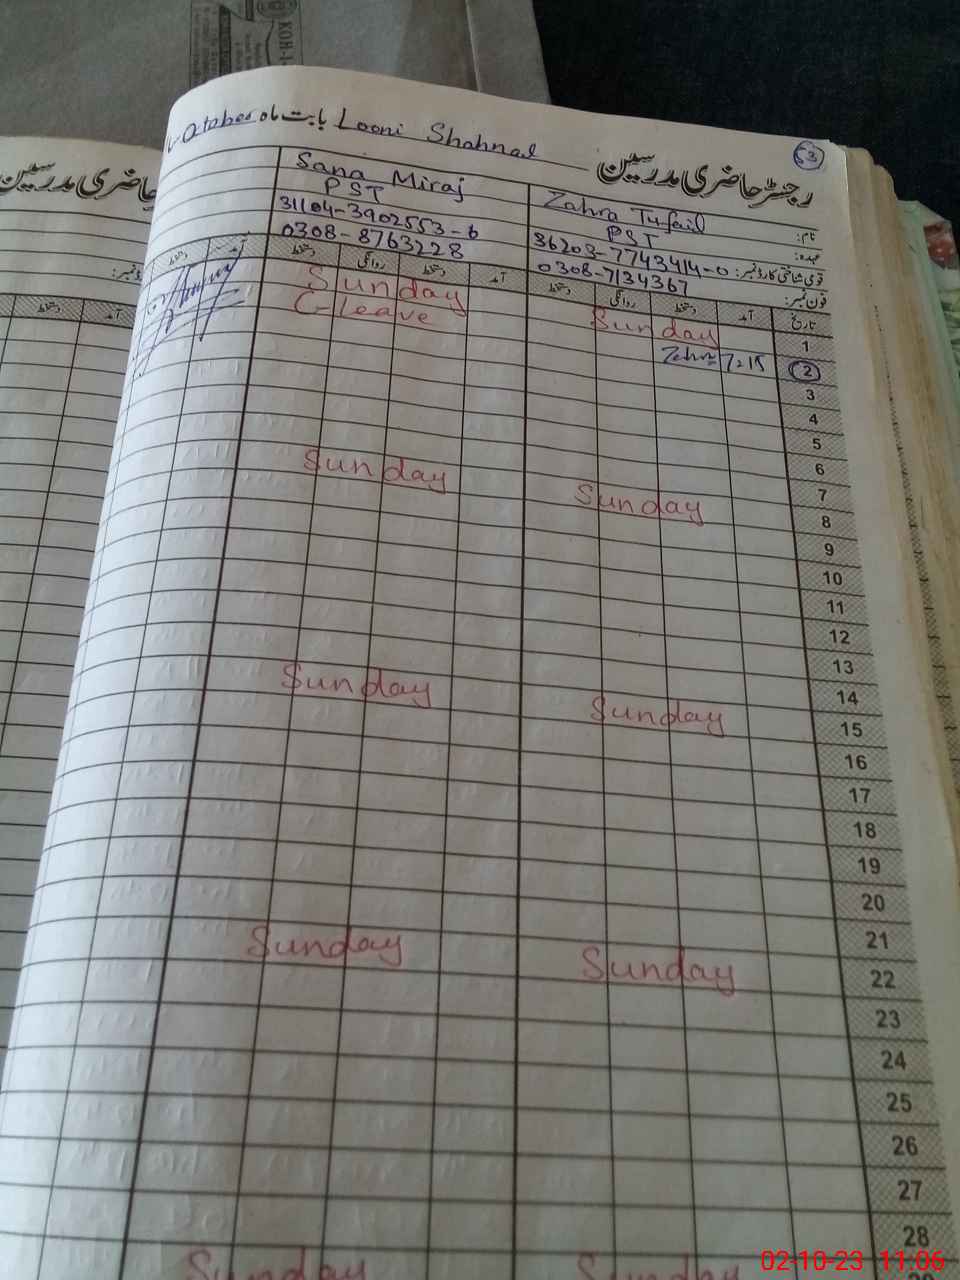 KOH-I
October بابت ماہ Looni Shahnal
53
رجسٹر حاضری مدرسین
حاضری مدرسین
نام: Zahra Tufail Sana Miraj
عہدہ: PST PST
قومی شناختی کارڈ نمبر: 36203-7743414-0 31104-3902553-6
فون نمبر: 0308-7134367 0308-8763228
تاریخ آمد دستخط روانگی دستخط آمد دستخط روانگی دستخط آمد دستخط
1 Sunday Sunday
2 Zahra 7:15 C-leave
3
4
5
6
7
8 Sunday Sunday
9
10
11
12
13
14
15 Sunday Sunday
16
17
18
19
20
21
22 Sunday Sunday
23
24
25
26
27
28
Sunday Sunday
نمبر:
آمد دستخط
02-10-23 11:06